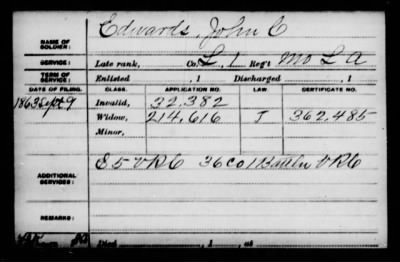 NAME OF SOLDIER: Edwards, John C
SERVICE: Late rank, Co. L, 1 Reg't Mo L A
TERM OF SERVICE: Enlisted , 1 Discharged , 1
DATE OF FILING. CLASS. APPLICATION NO. LAW. CERTIFICATE NO.
1863 Sept 9 Invalid, 32,382
Widow, 214,616 J 362,485
Minor,
ADDITIONAL SERVICES: S 5 V R C 36 Co 1 Battln V R C
REMARKS:
Died , 1 , at